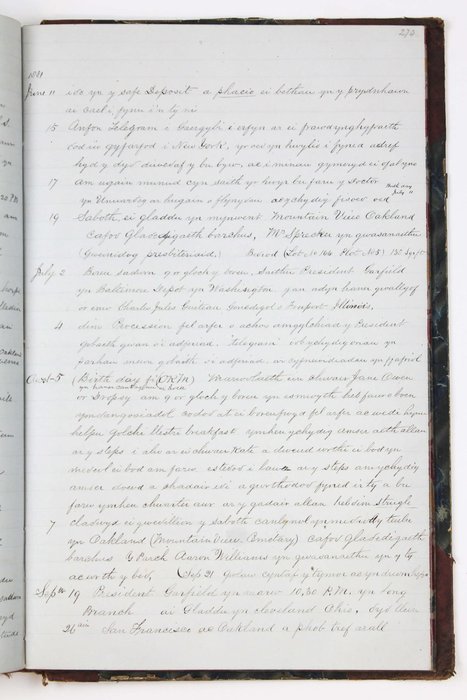 273
1881
June 11 ido yn y safe Deposit a phacio ei bethau yn y prydnhawn
ac cael i fynu i'n ty ni
15 Anfon Telegram i Caergybi i erfyn ar ei frawd ynghyfraith
ddod i'w gyfarfod i New York, yr oed yn hwylio i fyned adref
hyd y dydd diweddaf y bu byw, ac i minau gymeryd ei ofal
17 am ugain munud cyn saith yr hwyr bu farw y Doctor
yn Unarbymtheg a
July 11
19 Saboth, ei gladdu yn mynwent Mountain View Oakland
Cafodd Gladdedigaeth barchus, Mr Sprecker yn gwasanaethu
(Gweinidog presbiteraidd.) Beriod (Lot No 164 Plot No 5) 150 Sqr ft
July 2 Boreu sadwrn 9 or gloch y boreu, Saethu President Garfield
yn Baltimore Depot yn Washington gan ddyn haner gwallgof
or enw Charles Jules Guiteau Genedigol o Freeport Illinois,
4 dim Procession fel arfer o achos amgylchiad y President
gobaith gwan o'i adferiad. Telegrams oddychydig oriau yn
parhau mewn gobaith o'i adferiad, ar cyfnewidiadau yn
Oct 5 (Birth day fi (O R M)) Marwolaeth ein chwaer Jane Owen
yn haner cant a phump oed
or Dropsy am 9 or gloch y boreu yn esmwyth heb fawr o boen
yn ddangosiadol codod at ei boreufwyd fel arfer ac wedi hyny
helpu golchi llestri breakfast ymhen ychydig amser aeth allan
ar y steps i alw ar ei chwaer Kate a dweud wrthi ei bod yn
meddwl ei bod am farw. estedd i lawr ar y steps am ychydig
amser doed a chadair iddi a gwrthodod fyned i'r ty a bu
farw ymhen chwarter awr ar y gadair allan heb ddim strugle
7 cladwyd ei gweddillion y saboth canlynol ym meddrod y teulu
yn Oakland (Mountain View Cemetary) cafodd Gladdedigaeth
barchus y Parch Aaron Williams yn gwasanaethu yn y ty
ac wrth y bedd, Sep 21 gwlaw cyntaf y tymor
Sept 19 President Garfield yn marw 10,30 P.M. yn Long
Branch ai Gladdu yn Cleveland Ohio, dydd llun
26ain San Francisco ac Oakland a phob tref arall